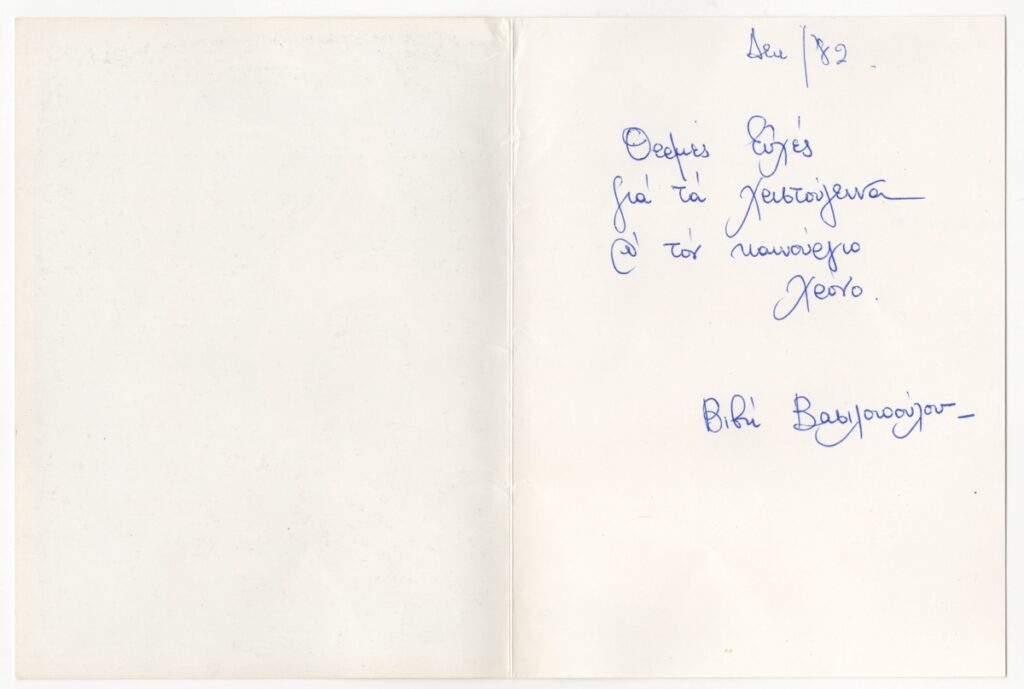 Δεκ/82.
Θερμές Εὐχές
γιά τά χριστούγεννα
κι τόν καινούργιο
χρόνο.
Βιβή Βασιλοπούλου